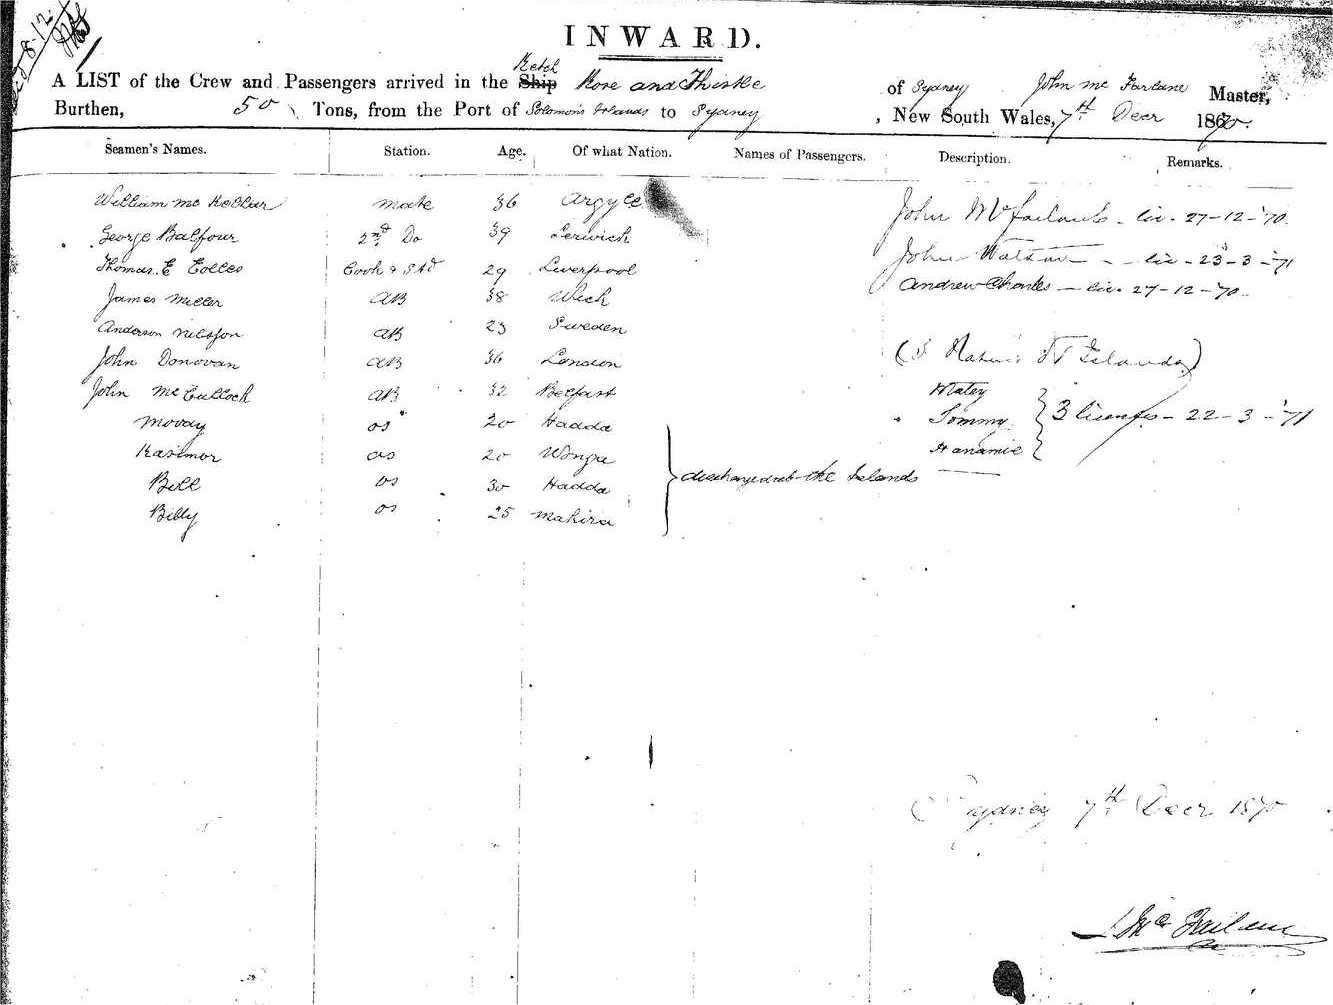 8-12
INWARD.
Ketch
A LIST of the Crew and Passengers arrived in the Ship Rose and Thistle of Sydney John Mc Farlane Master,
Burthen, 50 Tons, from the Port of Solomon's Islands to Sydney, New South Wales, 7th Decr 1870.
Seamen's Names. Station. Age. Of what Nation. Names of Passengers. Description. Remarks.
William Mc Kellar Mate 36 Argyle John McFarlane - liv. 27-12-'70
George Balfour 2nd Do 39 Lerwick John Watson - liv - 23-3-'71
Thomas. E Eolles Cook & Std 29 Liverpool Andrew Charles - liv. 27-12-'70.
James Miller AB 38 Wick
Anderson Nilsson AB 23 Sweden
John Donovan AB 36 London Islands)
John McCulloch AB 32 Belfast Matey
Movay os 20 Hadda Tommy 3 licenses - 22-3-'71
Kasimor os 20 Wonga Hanamie
Bill os 30 Hadda discharged at the Islands
Billy os 25 Makira
Sydney 7th Decr 1870
J McFarlane